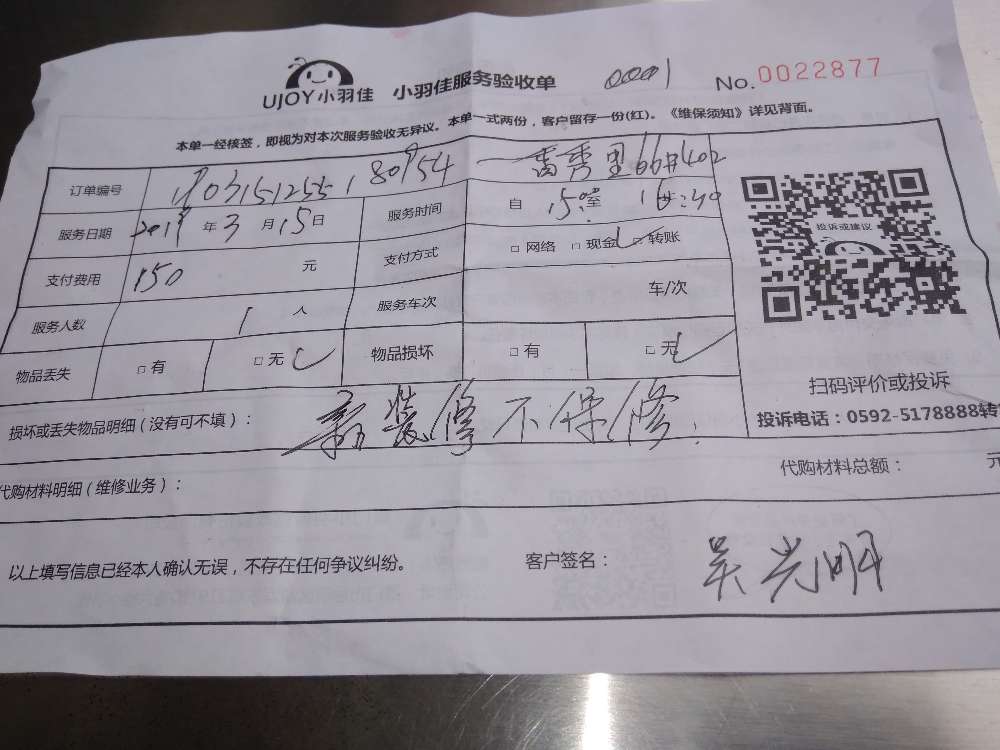 UJOY小羽佳 小羽佳服务验收单 0001 No.0022877
本单一经核签，即视为对本次服务验收无异议。本单一式两份，客户留存一份(红)。《维保须知》详见背面。
订单编号 66#402
服务日期 2019年3月15日 服务时间 自 至
支付费用 150 元 支付方式 □ 网络 □ 现金 □ 转账
服务人数 1 人 服务车次 车/次
物品丢失 □ 有 □ 无 物品损坏 □ 有 □ 无
投诉或建议
扫码评价或投诉
投诉电话：0592-5178888转
损坏或丢失物品明细（没有可不填）： 装修不保修
代购材料明细（维修业务）： 代购材料总额： 元
以上填写信息已经本人确认无误，不存在任何争议纠纷。 客户签名： 吴光明